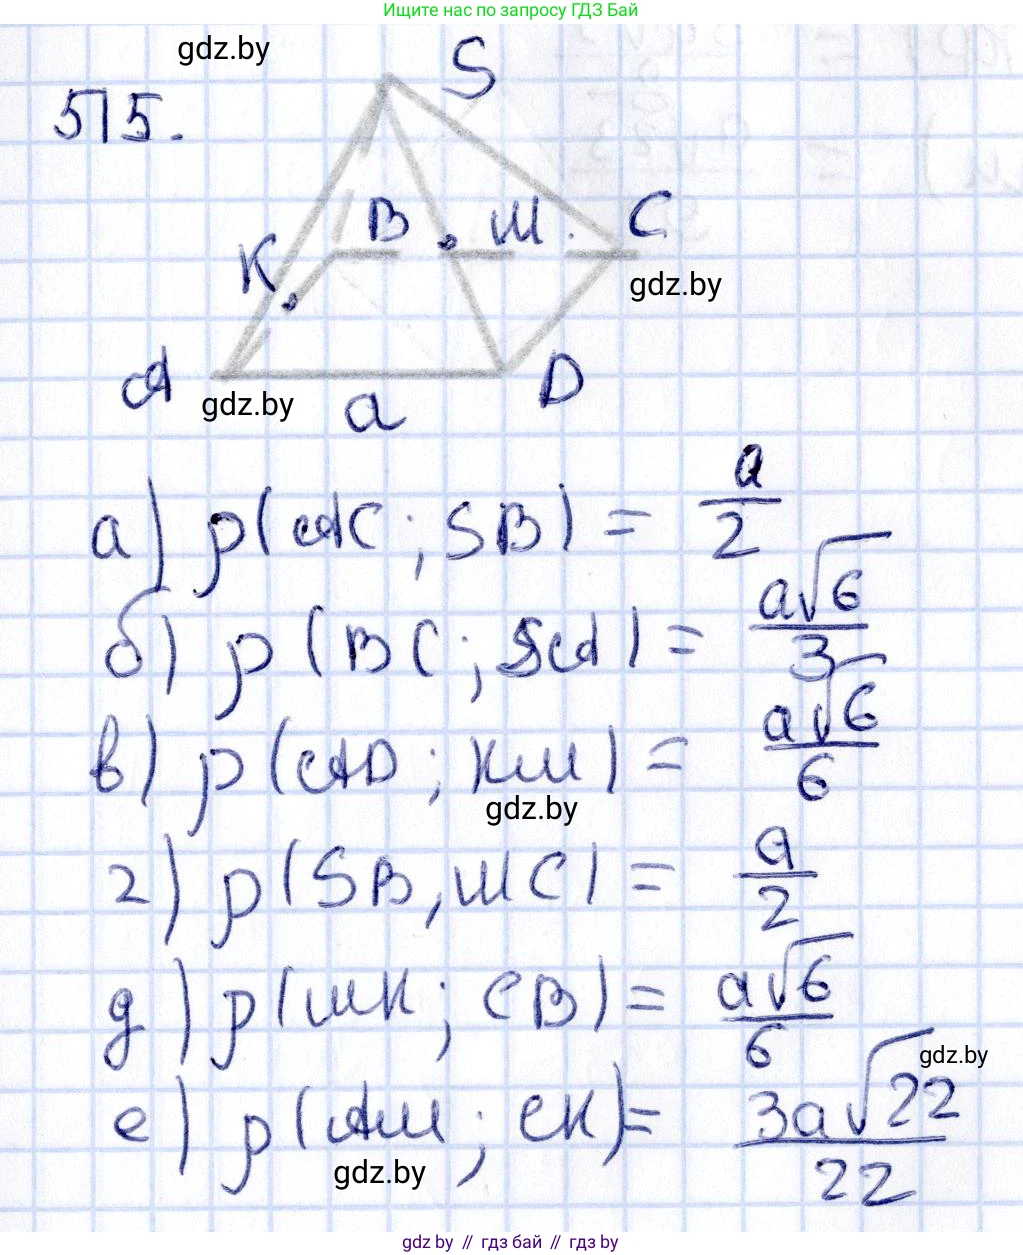 Ищите нас по запросу ГДЗ Бай
gdz.by
515.
S
B
M
C
K
gdz.by
A
D
gdz.by
a
а) ρ(AC; SB) = a/2
б) ρ(BC; SA) = a√6/3
в) ρ(AD; KM) = a√6/6
gdz.by
г) ρ(SB, MC) = a/2
д) ρ(MK; CB) = a√6/6
gdz.by
е) ρ(AM; CK) = 3a√22/22
gdz.by
gdz.by // гдз бай // gdz by